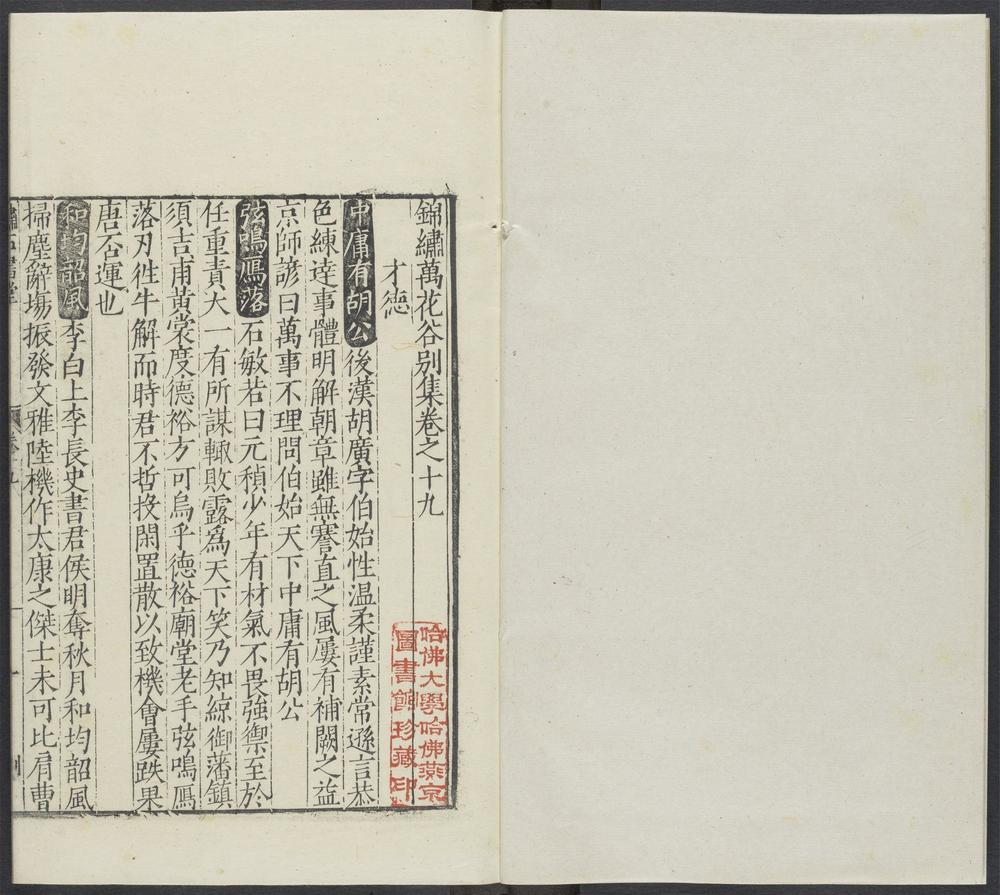 錦繡萬花谷别集卷之十九
才德
中庸有胡公後漢胡廣字伯始性温柔謹素常遜言恭
色練達事體明解朝章雖無謇直之風屢有補闕之益
京師諺曰萬事不理問伯始天下中庸有胡公
弦鳴鴈落石敏若曰元稹少年有材氣不畏強禦至於
任重責大一有所謀輙敗露爲天下笑乃知綜御藩鎮
須吉甫黄裳度德裕方可烏乎德裕廟堂老手弦鳴鴈
落刃徃牛解而時君不哲投閑置散以致機會屢跌果
唐否運也
和均韶風李白上李長史書君侯明奪秋月和均韶風
掃塵辭塲振發文雅陸機作太康之傑士未可比肩曹
哈佛大學哈佛燕京
圖書館珍藏印